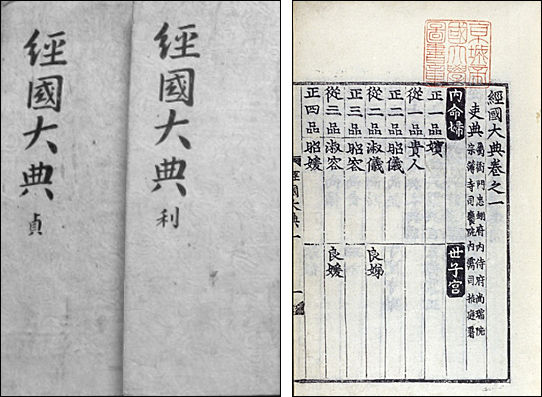 經國大典 利
經國大典 貞
京城帝
國大學
圖書章
經國大典卷之一
吏典
屬衙門忠翊府內侍府尙瑞院
宗簿寺司饔院內需司掖庭署
內命婦 世子宮
正一品嬪
從一品貴人
正二品昭儀
從二品淑儀 良娣
正三品昭容
從三品淑容 良媛
正四品昭媛
經國大典一